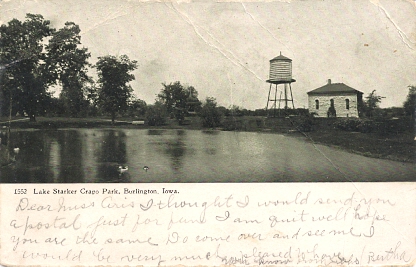 1552 Lake Starker Crapo Park, Burlington, Iowa.
Dear Miss I thought I would send you
a postal just for fun I am quit well hope
you are the same Do come over and see me I
would be very much pleased
you know Bertha